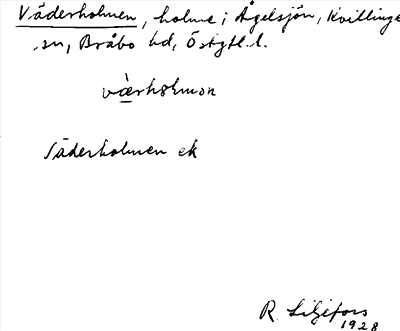 Väderholmen, holme i Ågelsjön, Kvillinge
sn, Bråbo hd, Östgtl. l.
vàerholmon
Säderholmen ek
R. Liljefors
1928